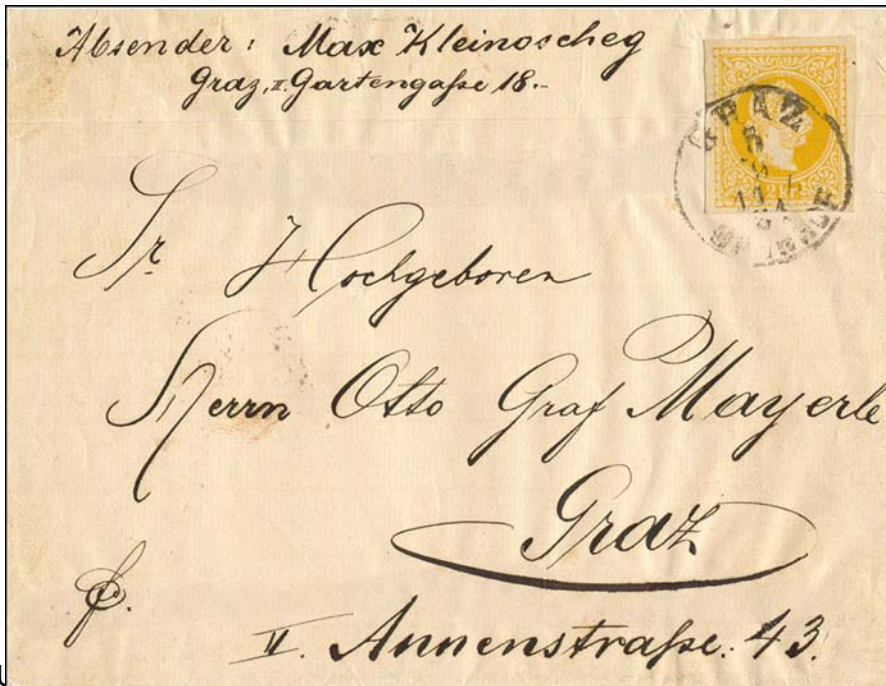 Absender: Max Kleinoscheg
Graz, II. Gartengaſse 18.-
GRAZ
2 KR
Sr. Hochgeboren
Herrn Otto Graf Mayerle
Graz
II. Annenstraſse: 43.